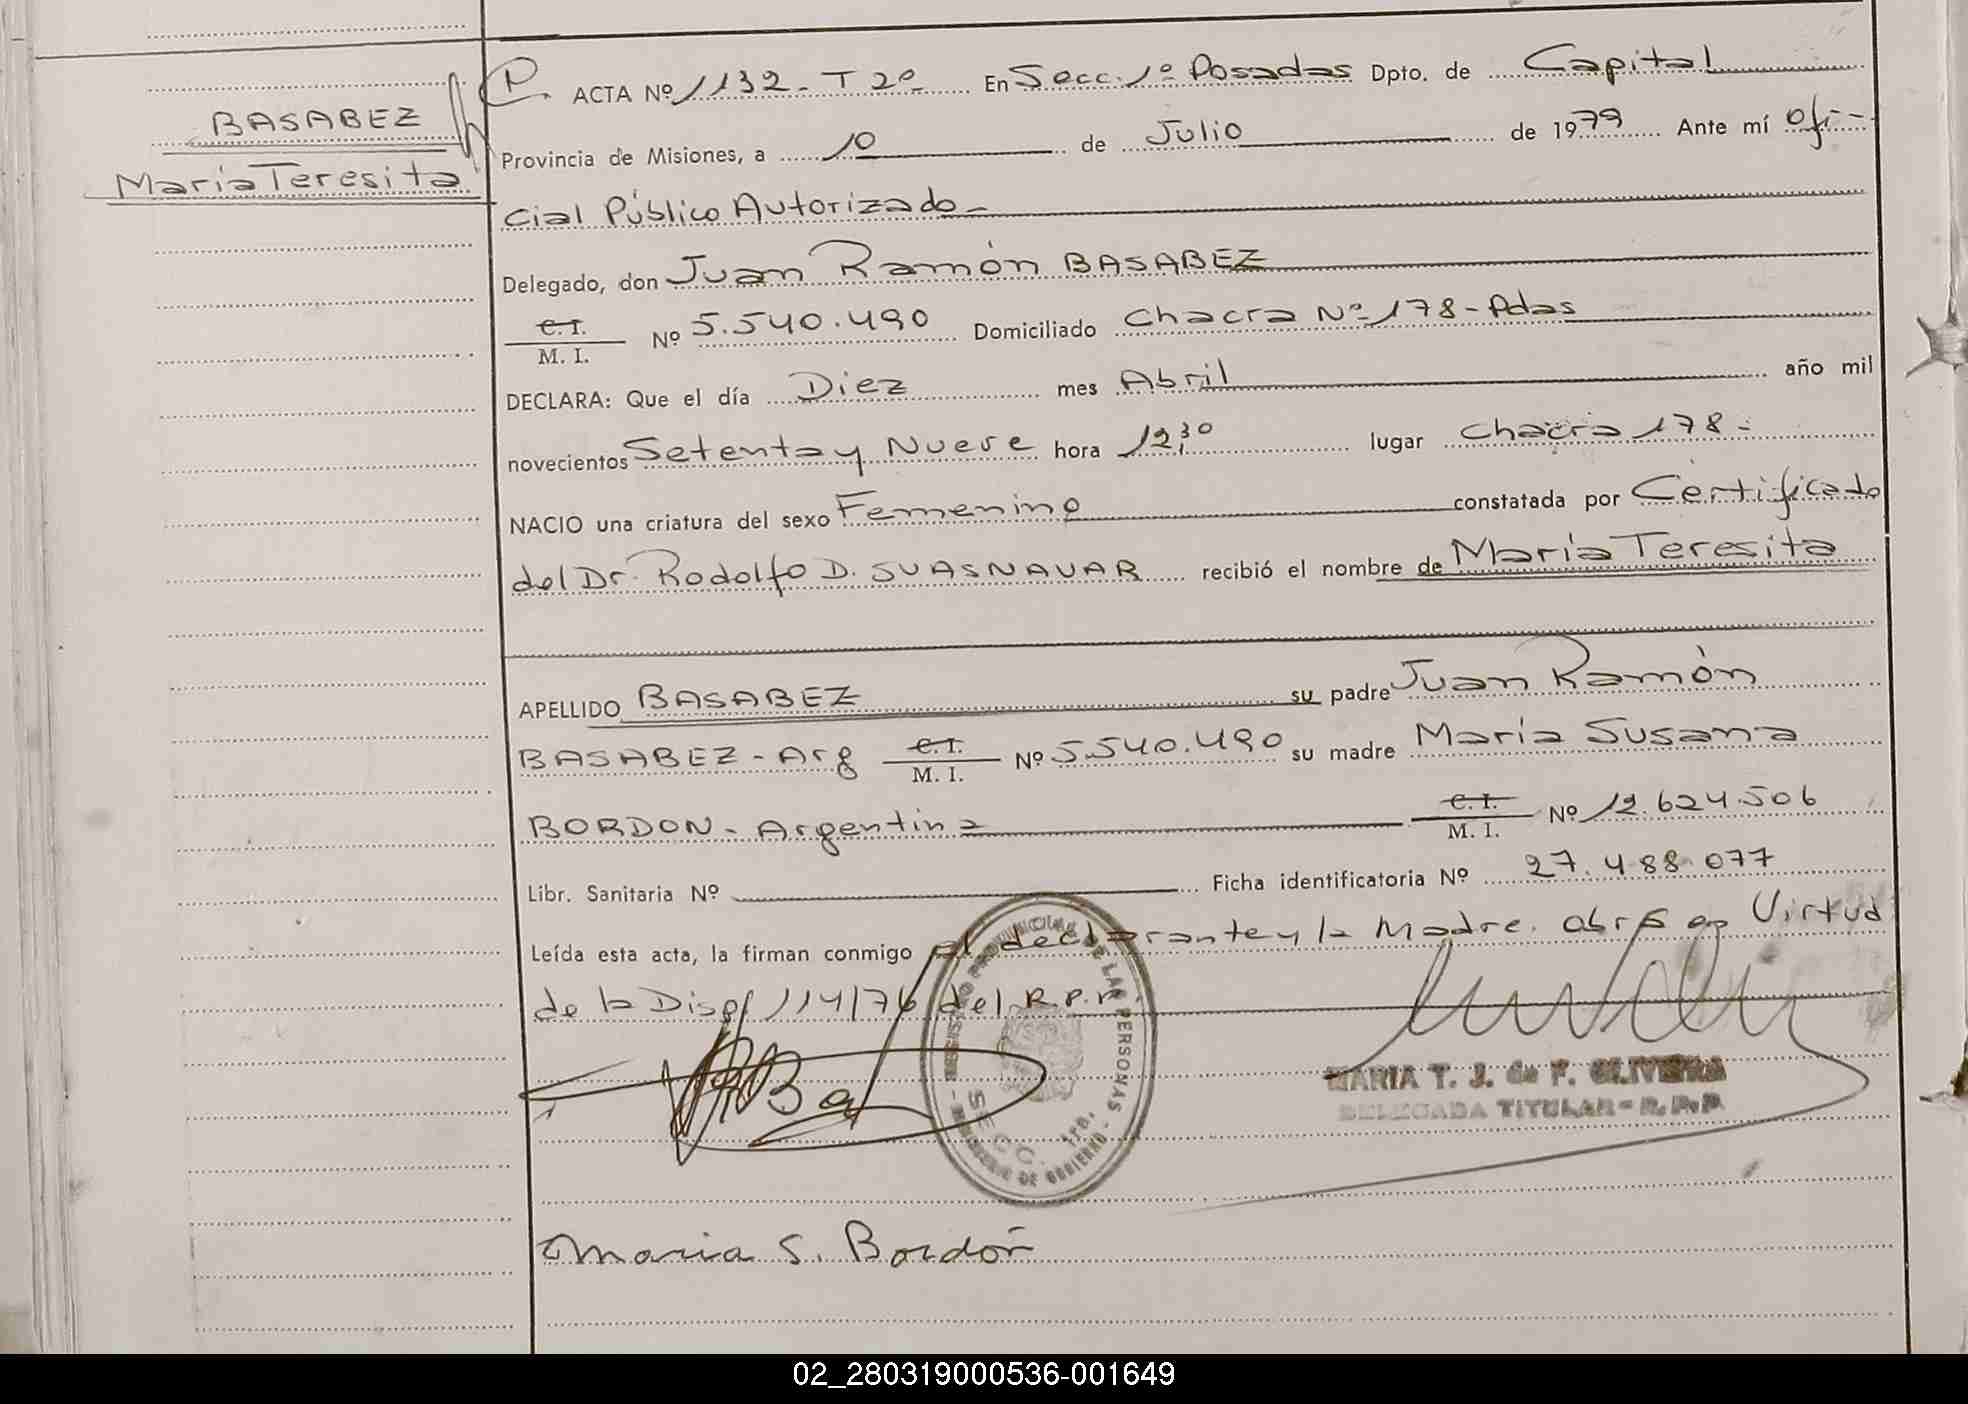 BASABEZ
María Teresita
P. ACTA Nº 1132 - T 2º - En Secc. 1º Posadas Dpto. de Capital
Provincia de Misiones, a 10 de Julio de 1979 Ante mí Ofi-
cial Público Autorizado -
Delegado, don Juan Ramón BASABEZ
C. I.
M. I. Nº 5.540.490 Domiciliado Chacra Nº 178 - Pdas
DECLARA: Que el día Diez mes Abril año mil
novecientos Setenta y Nueve hora 12,30 lugar Chacra 178 -
NACIO una criatura del sexo Femenino constatada por Certificado
del Dr. Rodolfo D. SUASNAVAR recibió el nombre de María Teresita
APELLIDO BASABEZ su padre Juan Ramón
BASABEZ - Arg C. I. M. I. Nº 5.540.490 su madre María Susana
BORDON - Argentina C. I. M. I. Nº 12.624.506
Libr. Sanitaria Nº Ficha identificatoria Nº 27.488.077
Leída esta acta, la firman conmigo el declarante y la Madre. Obra en Virtud
de la Disp. 114/76 del R.P.P.
REGISTRO PROVINCIAL DE LAS PERSONAS
SECC. 1ra.
- MINISTERIO DE GOBIERNO -
MARIA T. J. de F. OLIVEIRA
DELEGADA TITULAR - R. P. P.
Maria S. Bordón
02_280319000536-001649